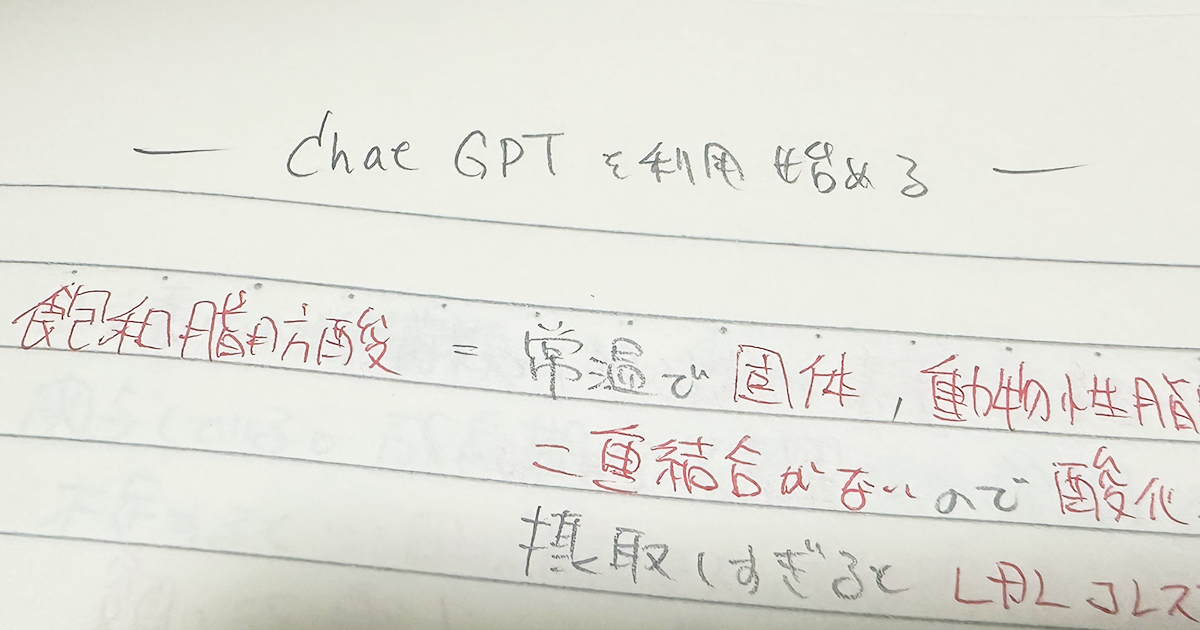 — Chat GPT を利用始める —
飽和脂肪酸 = 常温で固体, 動物性脂
二重結合がないので酸化
摂取しすぎると LDLコレス